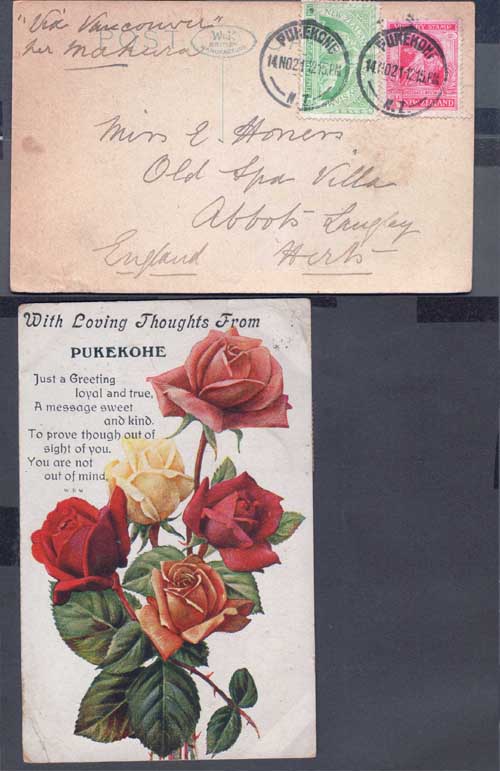 "Via Vancouver"
per Makura
POST
W&K
BRITISH
MANUFACTURE
PUKEKOHE
14.NO21-12.15.PM
N.Z.
NEW ZEALAND
PUKEKOHE
14.NO21-12.15.PM
N.Z.
VICTORY STAMP
NEW ZEALAND
Miss E.
Old Spa Villa
Abbots Langley
England Herts
With Loving Thoughts From
PUKEKOHE
Just a Greeting
loyal and true,
A message sweet
and kind.
To prove though out of
sight of you.
You are not
out of mind.